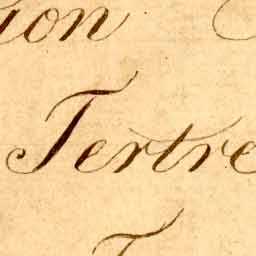 ion
Tertre
T